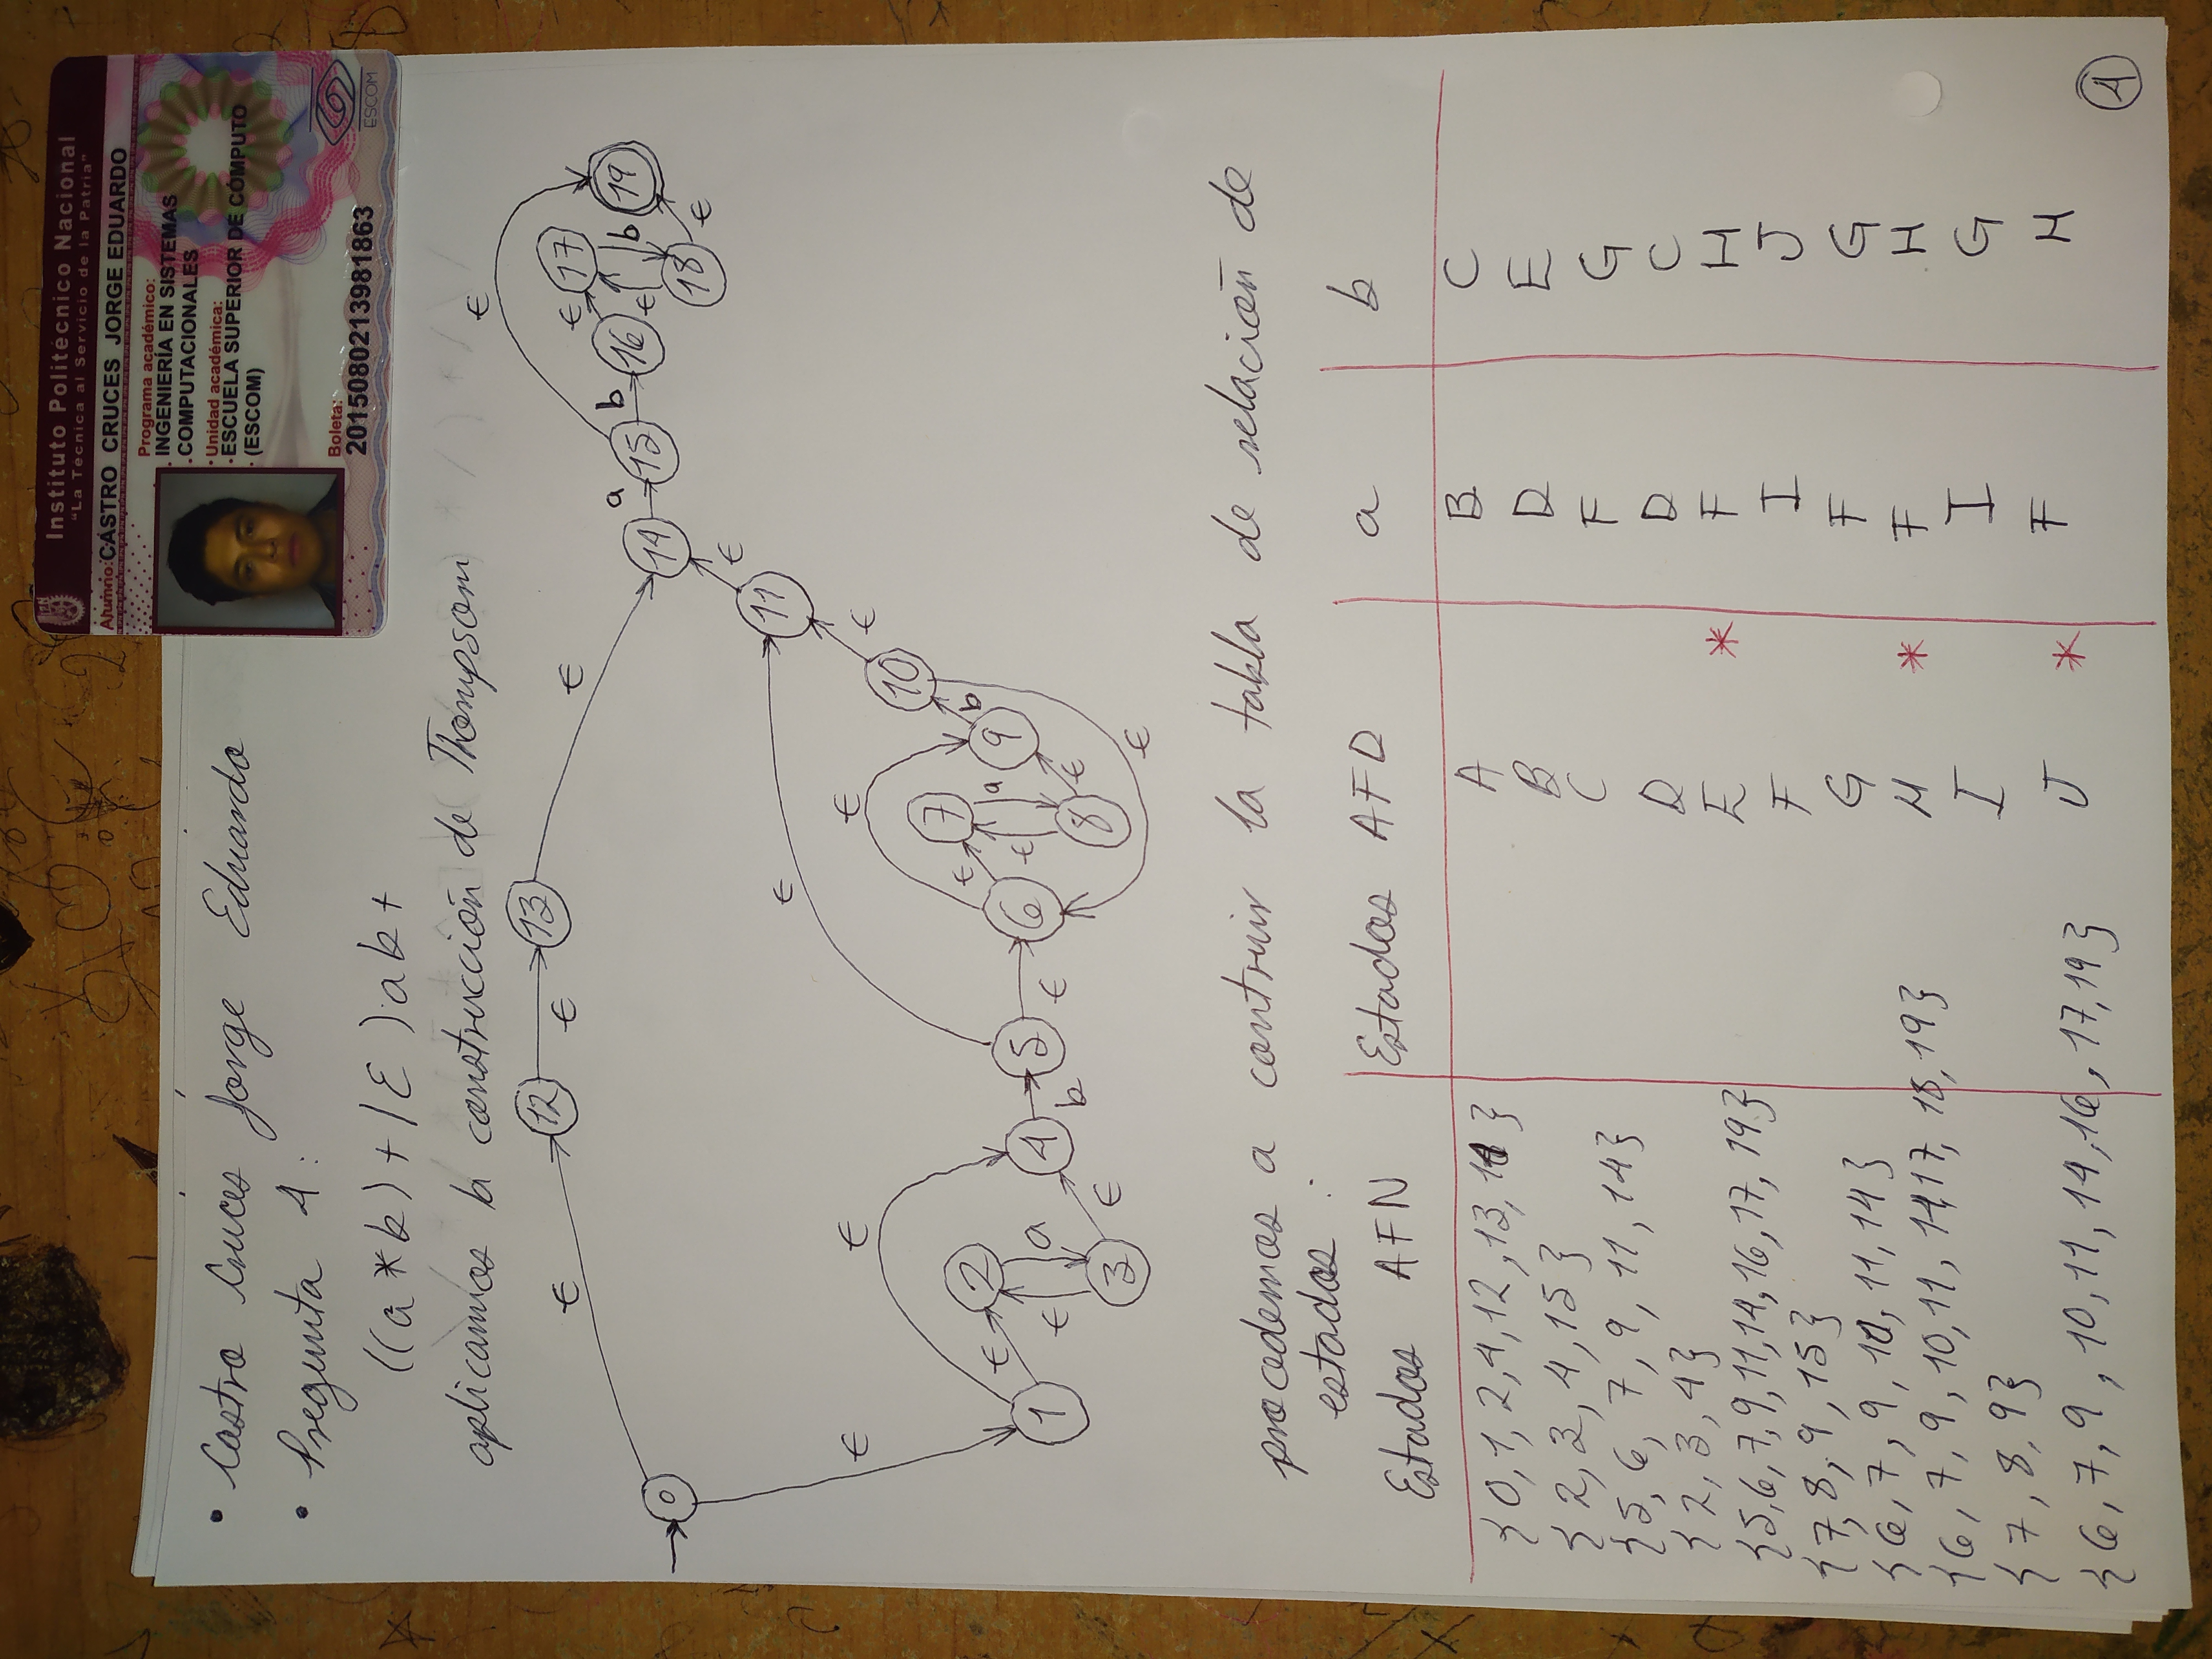 Instituto Politécnico Nacional
"La Técnica al Servicio de la Patria"
Alumno: CASTRO CRUCES JORGE EDUARDO
Programa académico:
INGENIERÍA EN SISTEMAS
COMPUTACIONALES
Unidad académica:
ESCUELA SUPERIOR DE CÓMPUTO
(ESCOM)
Boleta:
2015080213981863
ESCOM
• Castro Cruces Jorge Eduardo
• Pregunta 4:
((a*b)+|ε)ab+
aplicamos la construcción de Thompsom
ϵ
12 ϵ 13 ϵ 17
ϵ ϵ a b 16 b 19
0 14 15 ϵ
18 ϵ
ϵ
ϵ 11
ϵ ϵ ϵ ϵ
10
2 7 b
ϵ ϵ a 9
1 ϵ a 4 b 5 ϵ 6 ϵ
3 ϵ 8 ϵ
ϵ
procedemos a contruir la tabla de relación de
estados :
Estados AFN Estados AFD a b
{0,1,2,4,12,13,14} A B C
{2,3,4,15} B D E
{5,6,7,9,11,14} C F G
{2,3,4} D D C
{5,6,7,9,11,14,16,17,19} E * F H
{7,8,9,15} F I J
{6,7,9,10,11,14} G F G
{6,7,9,10,11,14,17,18,19} H * F H
{7,8,9} I I G
{6,7,9,10,11,14,16,17,19} J * F H
4